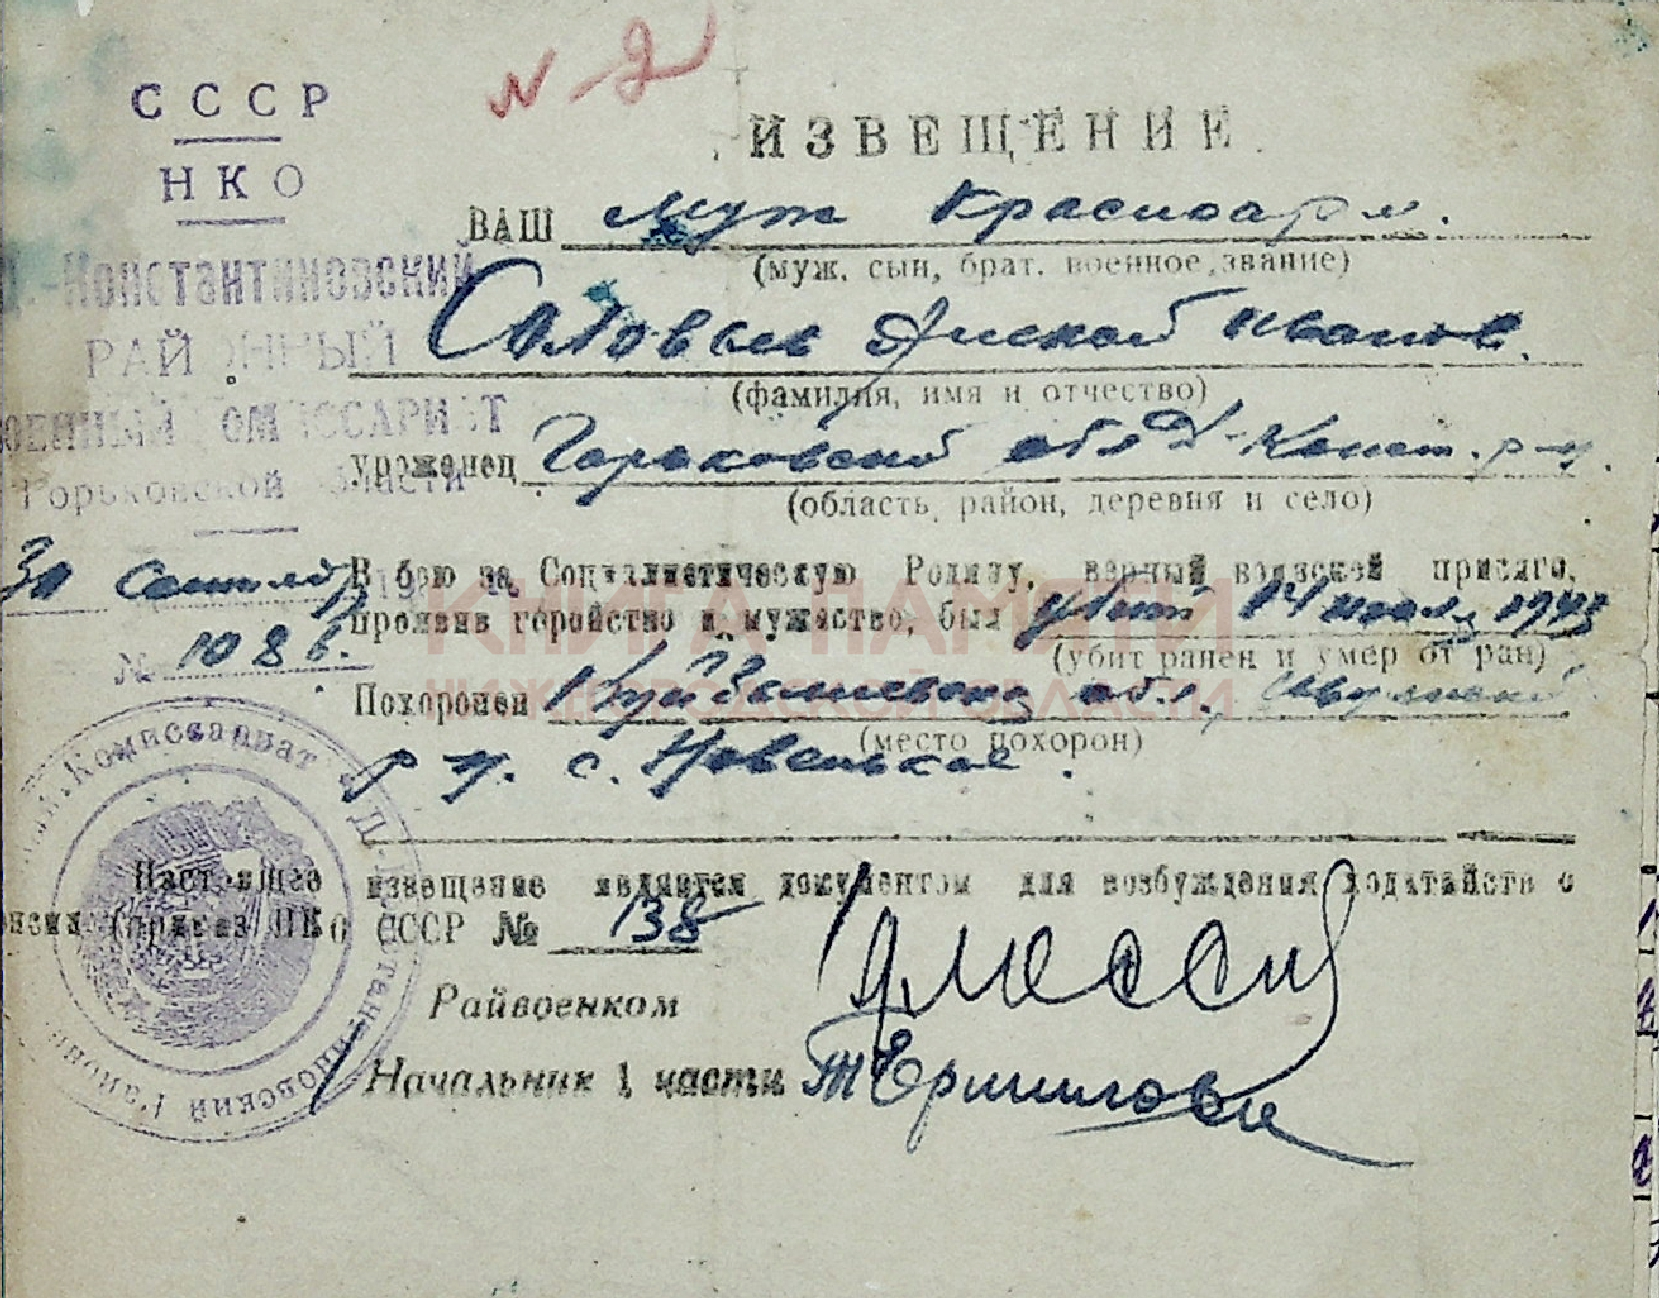 N-2
СССР
НКО
Д.-Константиновский
РАЙОННЫЙ
ВОЕННЫЙ КОМИССАРИАТ
Горьковской области
30 Сентябр 19
№ 1086.
ИЗВЕЩЕНИЕ
ВАШ муж Красноарм.
(муж. сын, брат. военное звание)
Соловьев Иванов.
(фамилия, имя и отчество)
уроженец Горьковской обл Д-Конст. р-н.
(область, район, деревня и село)
В бою за Социалистическую Родину, верный воинской присяге,
проявив геройство и мужество, был убит 14 июля 1943
(убит ранен и умер от ран)
Похоронен Куйбышевская обл.,
(место похорон)
р-н. с. Новенькое.
Настоящее извещение является документом для возбуждения ходатайств о
пенсии (приказ НКО СССР № 138
Райвоенком
Начальник 1 части
Комиссариат Д.-Константиновский Район
КНИГА ПАМЯТИ
НИЖЕГОРОДСКОЙ ОБЛАСТИ